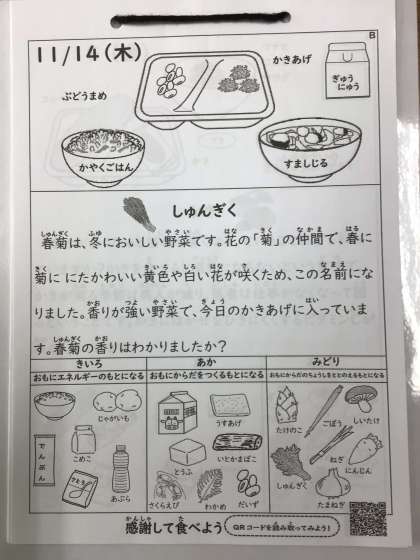 B
11/14(木)
かきあげ
ぎゅう
にゅう
ぶどうまめ
かやくごはん
すましじる
しゅんぎく
春菊は、冬においしい野菜です。花の「菊」の仲間で、春に
菊に にたかわいい黄色や白い花が咲くため、この名前にな
りました。香りが強い野菜で、今日のかきあげに入っていま
す。春菊の香りはわかりましたか？
きいろ
おもにエネルギーのもとになる
じゃがいも
こめこ
でんぷん
さとう
あぶら
あか
おもにからだをつくるもとになる
うすあげ
とうふ
いとかまぼこ
さくらえび
わかめ
だいず
みどり
おもにからだのちょうしをととのえるもとになる
たけのこ
ごぼう
しいたけ
ねぎ
にんじん
しゅんぎく
たまねぎ
感謝して食べよう
QRコードを読み取ってみよう！